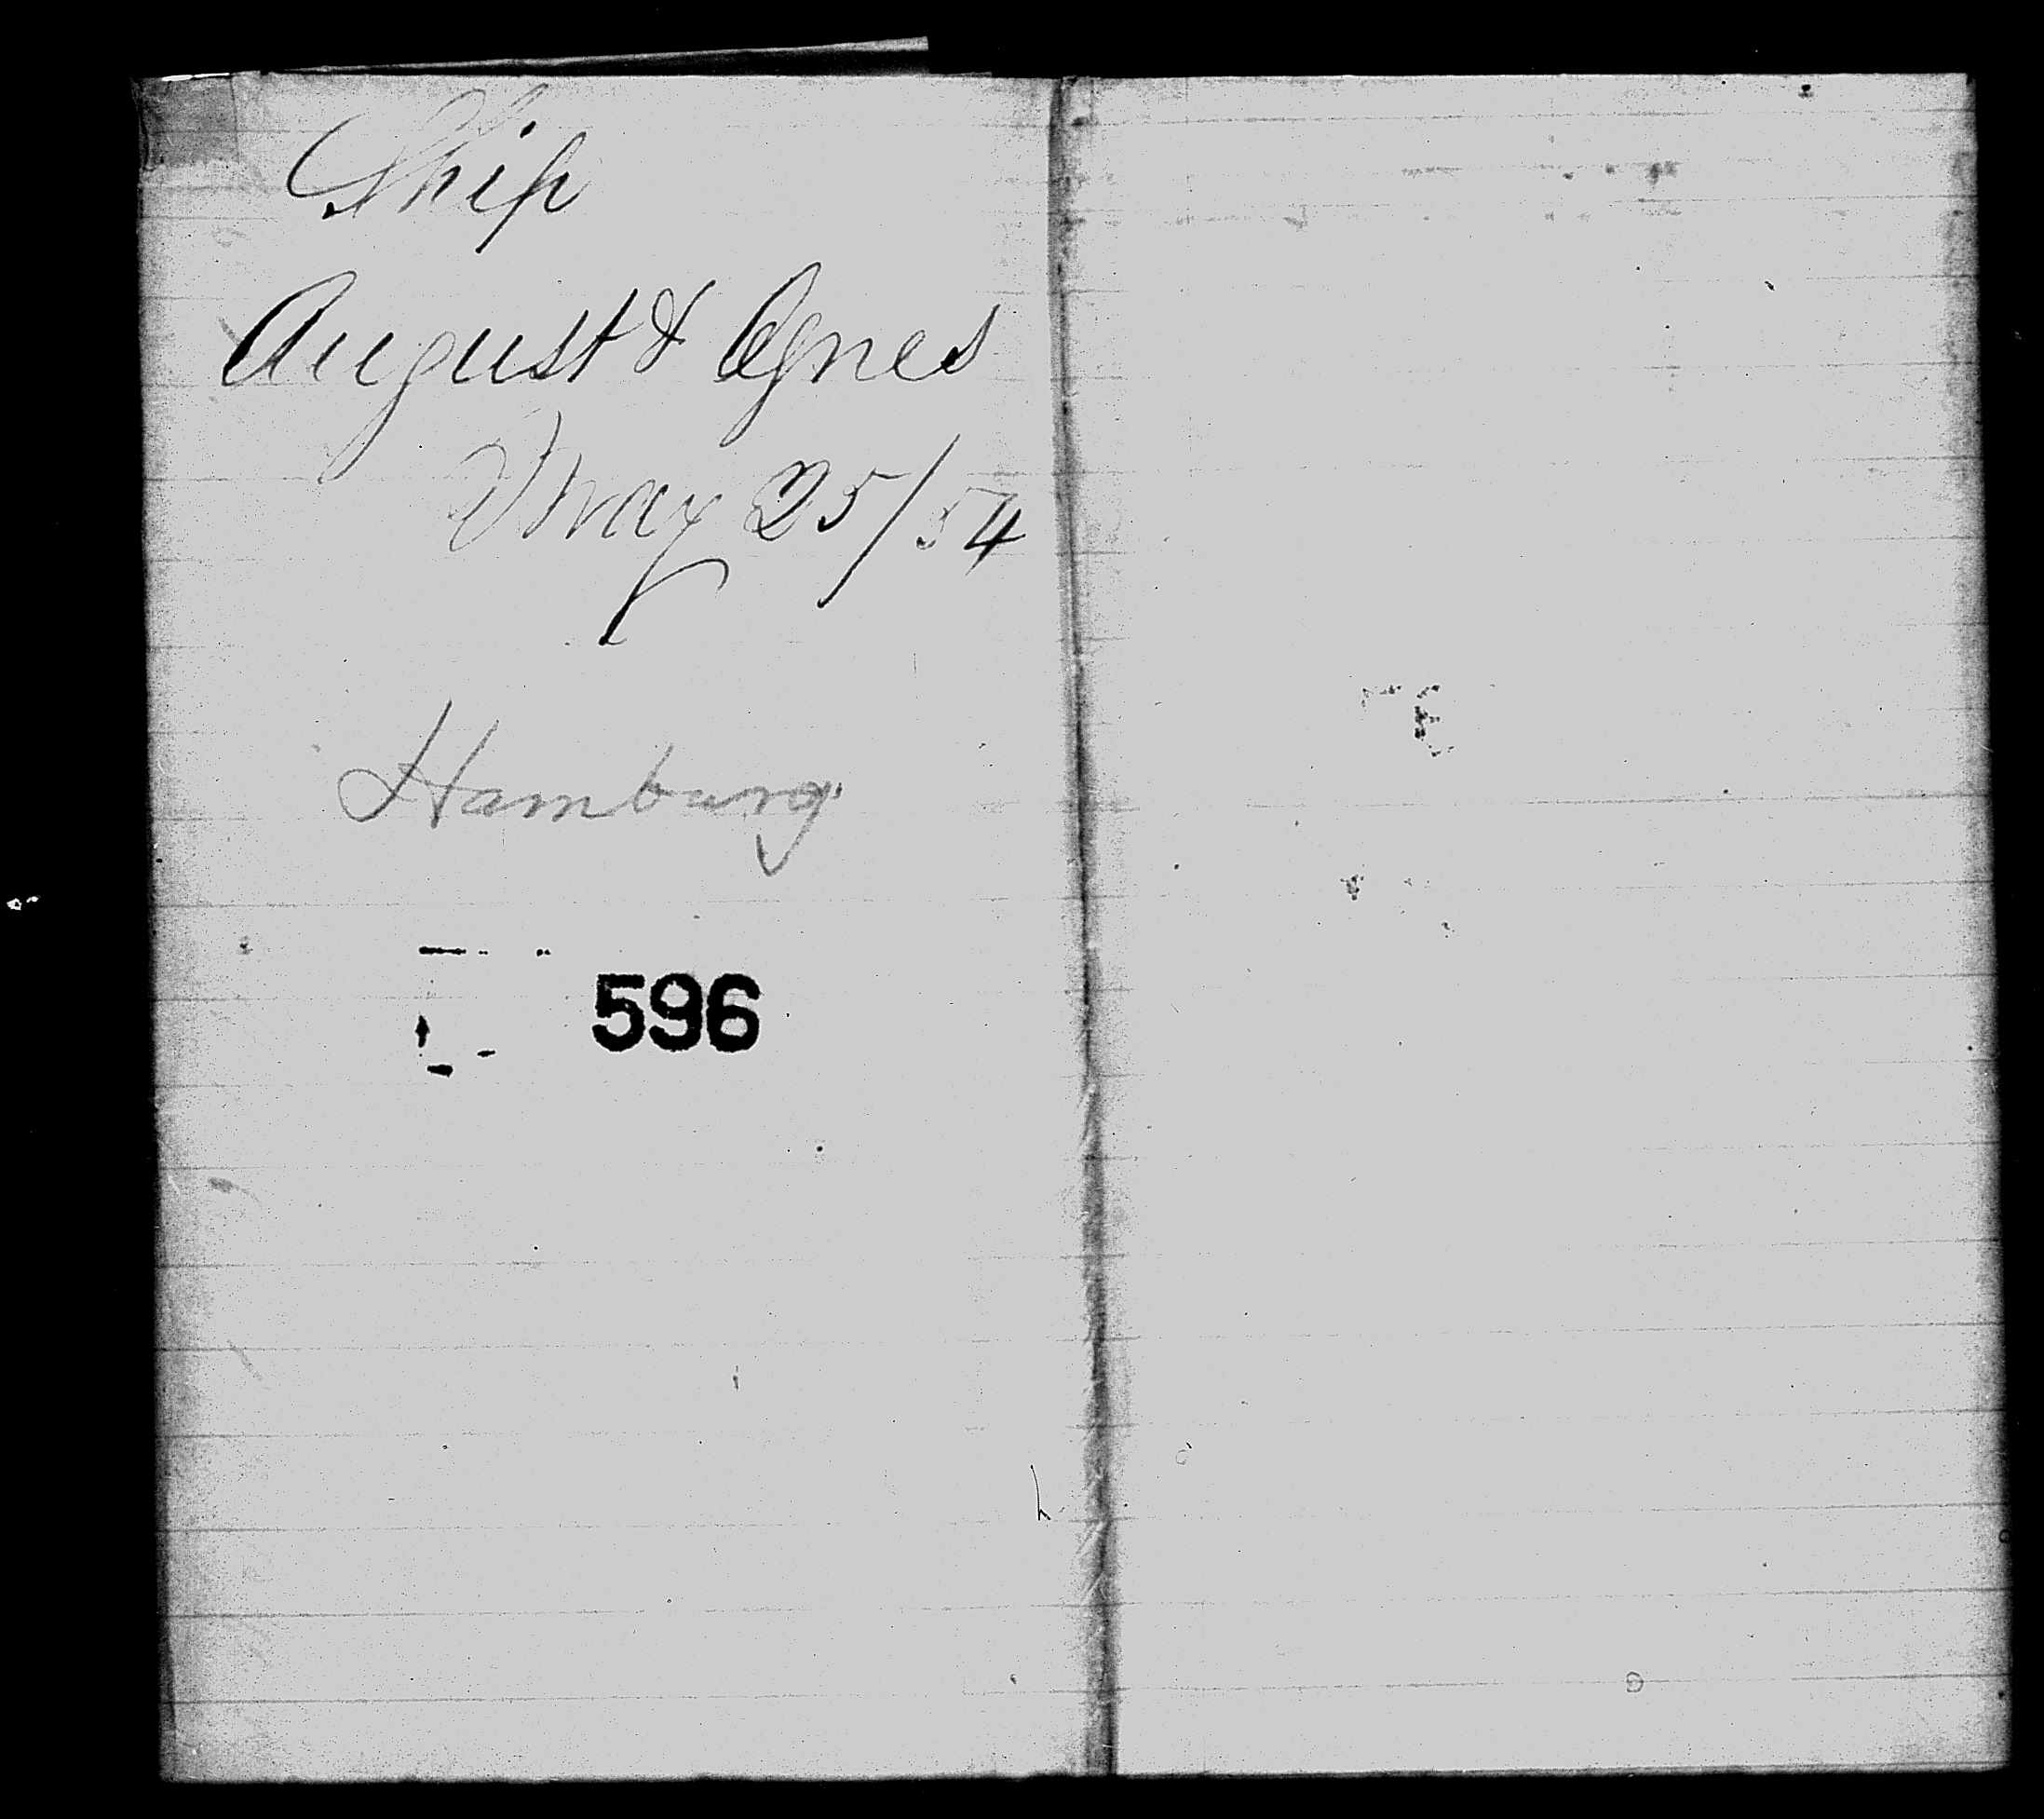 Ship
August & Agnes
May 25/54
Hamburg.
596